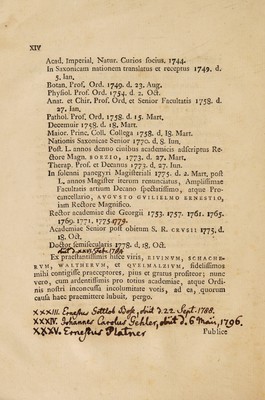 XIV
Acad. Imperial, Natur. Curios socius, 1744.
In Saxonicam nationem translatus et receptus 1749, d.
5. Ian.
Botan. Prof. Ord. 1749. d. 23. Aug.
Physiol. Prof. Ord. 1754. d. 2. Oct.
Anat. et Chir. Prof. Ord. et Senior Facultatis 1758. d.
27. Ian.
Pathol. Prof. Ord. 1758. d. 15. Mart.
Decemuir 1758. d. 18. Mart.
Maior. Princ. Coll. Collega 1758. d. 18. Mart.
Nationis Saxonicae Senior 1770. d. 8. Ian.
Post L. annos denuo ciuibus academicis adscriptus Re-
ctore Magn. BOERZIO, 1773. d. 27. Mart.
Therap. Prof. et Decanus 1773. d. 27. Iun.
In solenni panegyri Magisteriali 1775. d. 2. Mart. post
L. annos Magister iterum renunciatus, Amplissimae
Facultatis artium Decano spectatissimo, atque Pro-
cancellario, AVGVSTO GVILIELMO ERNESTIO,
iam Rectore Magnifico.
Rector academiae die Georgii 1753. 1757. 1761. 1765.
1769. 1771. 1775. 1779.
Academiae Senior post obitum S. R. CRVSII 1775. d.
18. Oct.
Doctor semisecularis 1778. d. 18. Oct.
Ex praestantissimis hisce viris, RIVINVM, SCHACHE-
RVM, WALTHERVM, et QVELMALZIVM, fidelissimos
mihi contigisse praeceptores, pius et gratus profiteor; nunc
vero, cum ardentissimis pro totius academiae, atque Ordi-
nis nostri inconcussa incolumitate votis, ad ea, quorum
causa haec praemittere lubuit, pergo.
XXXIII. Ernestus Gottlob Bose, obiit d. 22 Sept. 1788.
XXXIV. Iohannes Carolus Gehler, obiit d. 6 Maii, 1796.
XXXV. Ernestus Platner
Publice